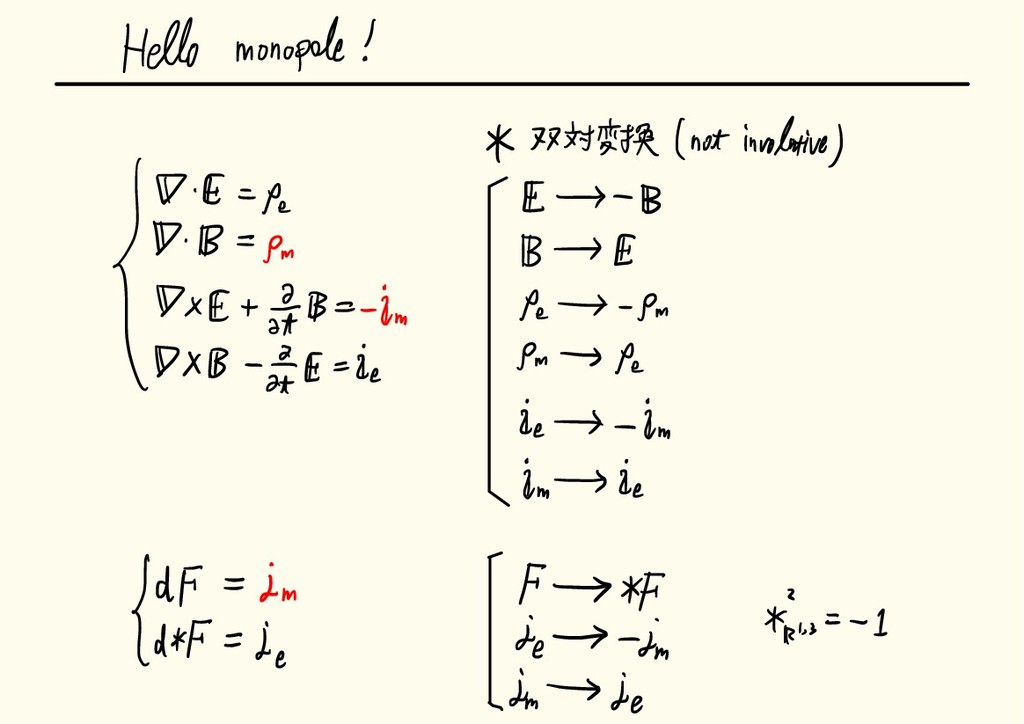 Hello monopole!
∇·E = ρe
∇·B = ρm
∇×E + ∂/∂t B = -im
∇×B - ∂/∂t E = ie
* 双対変換 (not involutive)
E → -B
B → E
ρe → -ρm
ρm → ρe
ie → -im
im → ie
dF = jm
d*F = je
F → *F
je → -jm
jm → je
*²ℝ¹,³ = -1